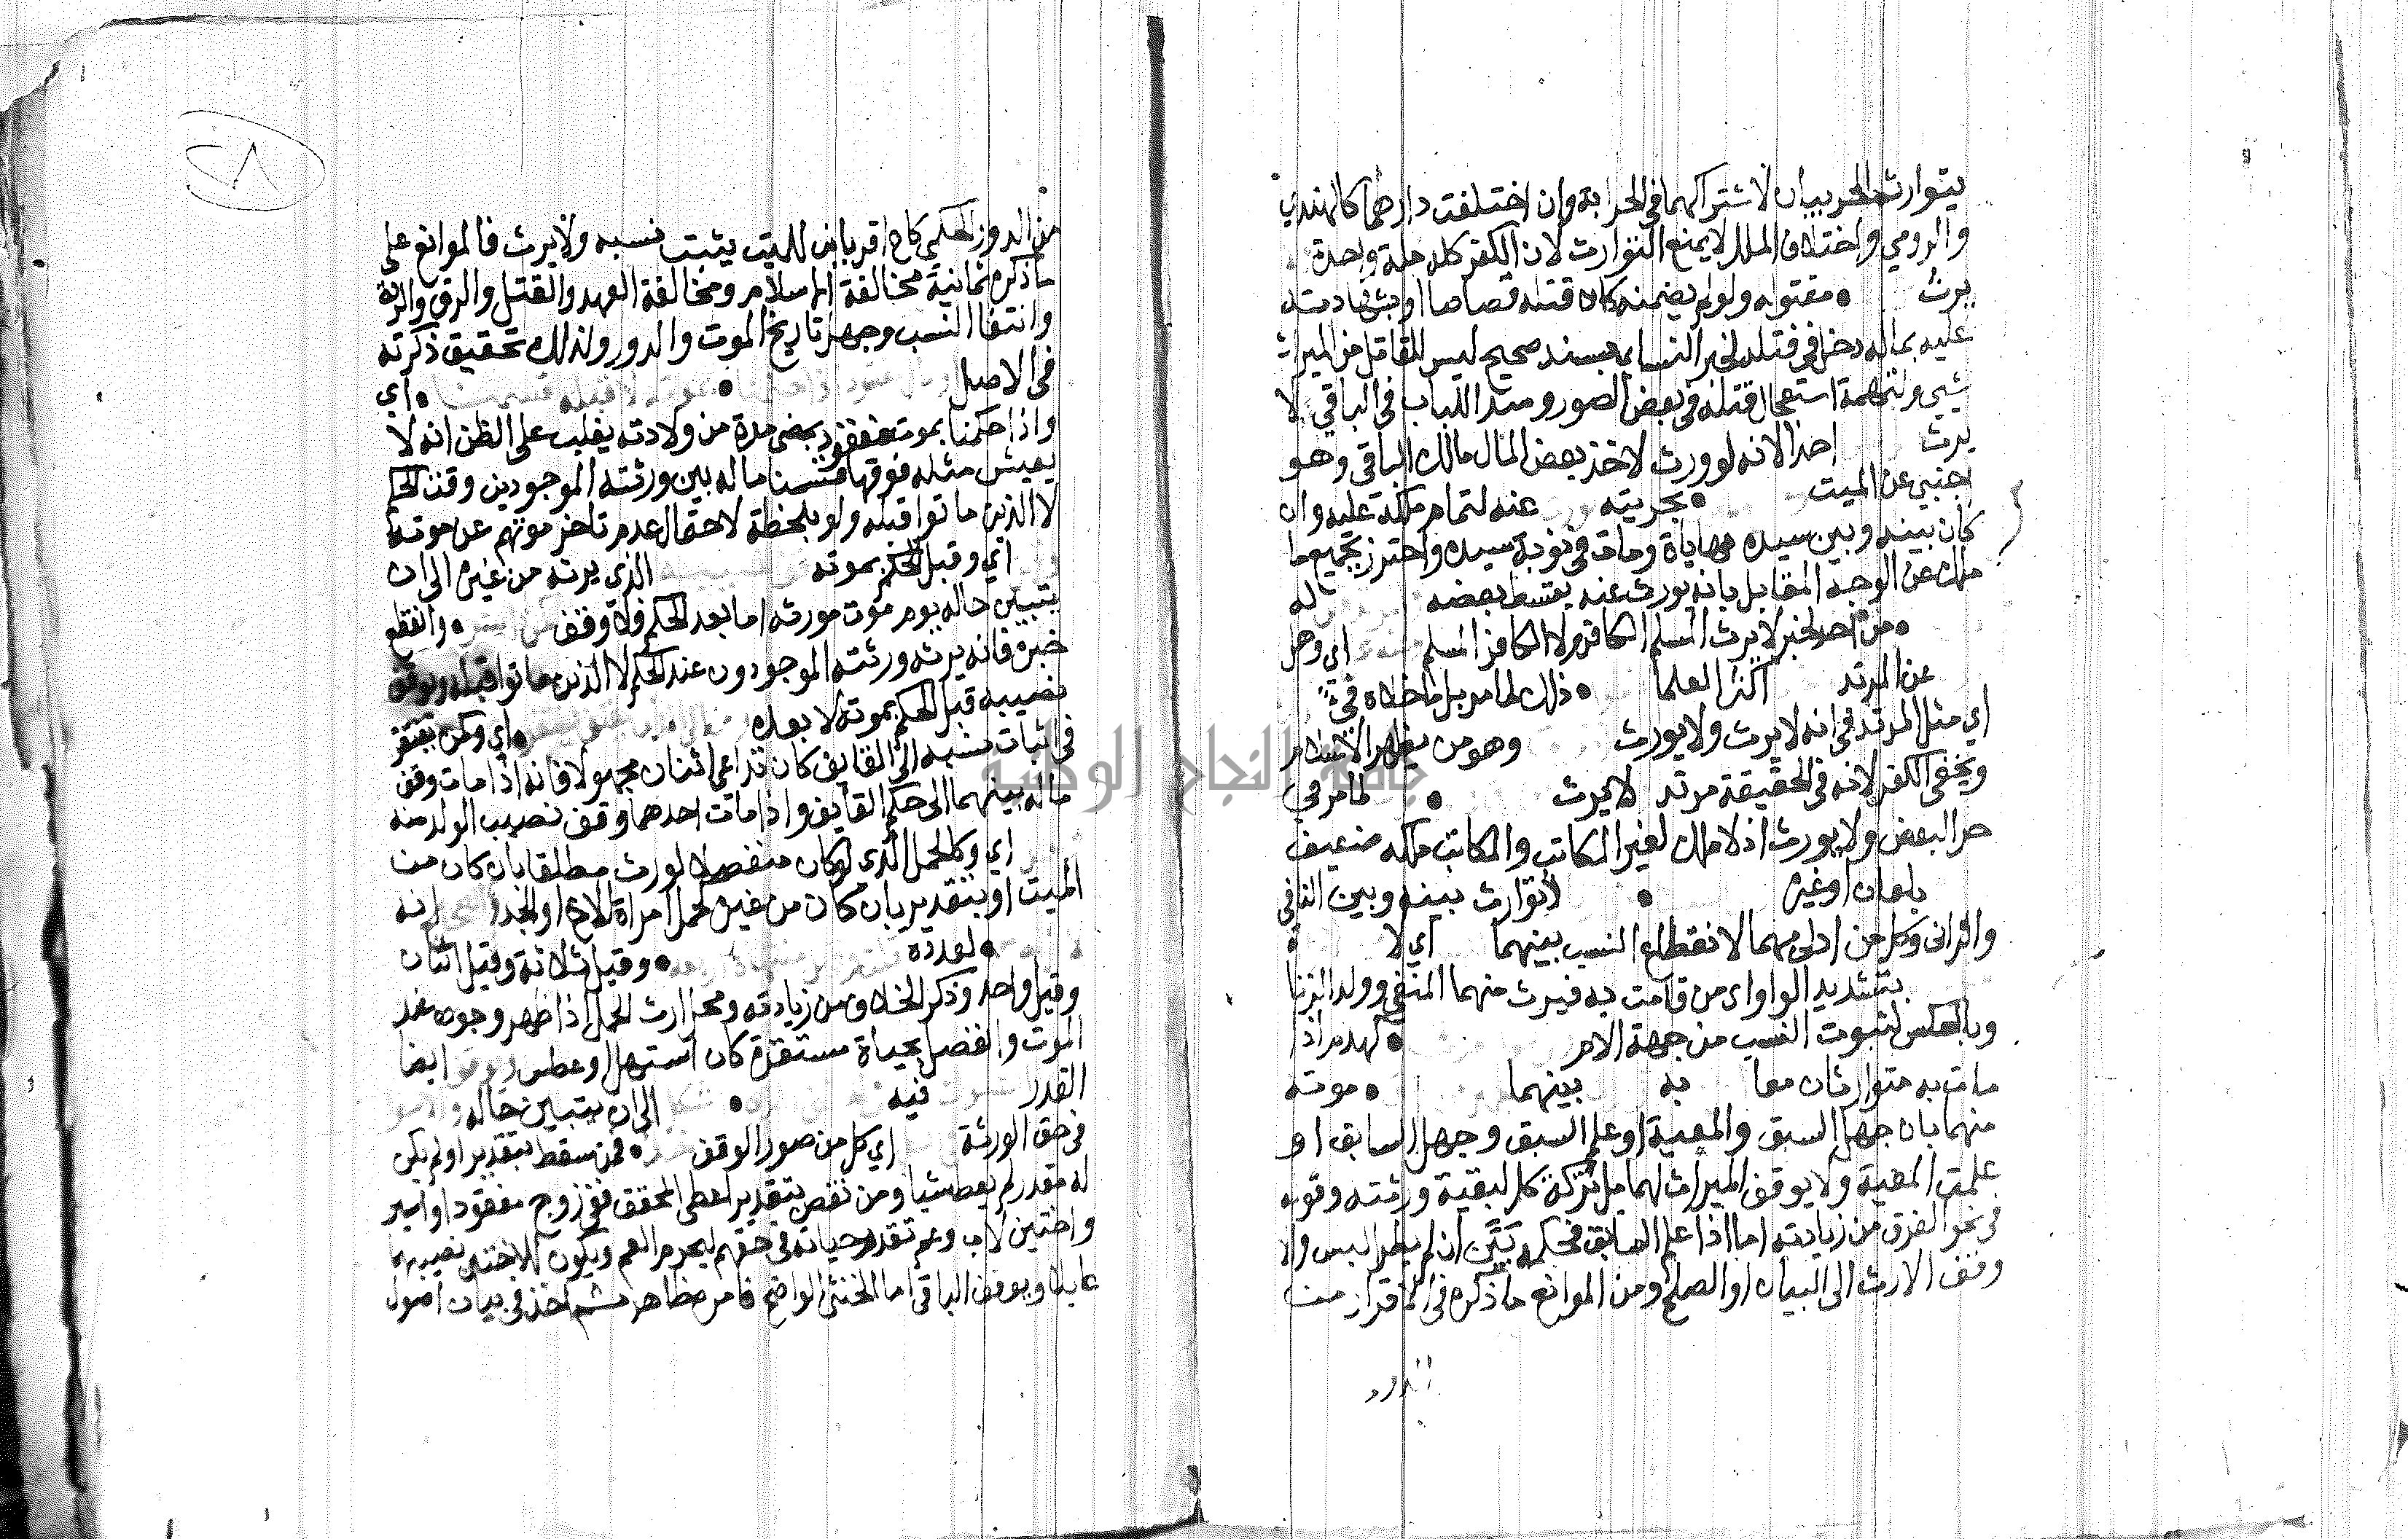 يتوارث الحربيان لاشتراكهما في الحرابة وان اختلفت دارهما كالهندي
والرومي واختلاف الملل لا يمنع التوارث لان الكفر كله ملة واحدة
يرث مقتوله ولو لم يضمنه كان قتله قصاصا او بشهادته
عليه بماله دخل في قتله لخبر النسايي بسند صحيح ليس للقاتل من الميراث
شيي ولتهمة استعجال قتله في بعض الصور وسد الباب في الباقي لا
يرث احدا لانه لو ورث لاخذ بعض المال مالك الباقي وهو
اجنبي عن الميت بحريته عنه لتمام ملكه عليه وان
كان بينه وبين سيده مهاياة ومات في نوبة سيده واحترز بجميع ما
ملك عن الوجه المقابل بانه يورث عنه بقسط بعضه له
من احد لخبر لا يرث المسلم الكافر ولا الكافر المسلم اي وهو
عن المرتد اكثر العلما ذلك لما مر بل ما خلاه فيء
اي مثل المرتد في انه لا يرث ولا يورث وهو من يظهر الاسلام
ويخفي الكفر لانه في الحقيقة مرتد لا يرث لما مر في
حر البعض ولا يورث اذ لا ملك لغير المكاتب والمكاتب ملكه ضعيف
بلعان او غيره لا توارث بينه وبين النافي
والزاني وكل من ادلى بهما لانقطاع النسب بينهما اي لا
بتشديد الواو اي من قامت به فيرث منهما المنفي وولد الزنا
وبالعكس لثبوت النسب من جهة الام كهدم اذا
مات به متوارثان معا به بينهما موته
منهما بان جهل السبق والمعية او علم السبق وجهل السابق او
علمت المعية ولا يوقف الميراث لهما بل تركة كل لبقية ورثته وقوله
في نحو الغرق من زيادته اما اذا علم السابق فحكمه بين ان لم يطر لبس والا
وقف الارث الى البيان او الصلح ومن الموانع ما ذكره في الاقرار من
الدور
٢٨
من الدور الحكمي كاخ اقر بابن للميت يثبت نسبه ولا يرث فالموانع على
ما ذكره ثمانية مخالفة الاسلام ومخالفة العهد والقتل والرق والردة
وانتفا النسب وجهل تاريخ الموت والدور ولذلك تحقيق ذكرته
في الاصل اي
واذا حكمنا بموت مفقود بمضي مدة من ولادته يغلب على الظن انه لا
يعيش مثله فوقها قسمنا ماله بين ورثته الموجودين وقت الحكم
لا الذين ماتوا قبله ولو بلحظة لاحتمال عدم تاخر موتهم عن موته
اي وقبل الحكم بموته الذي يرثه من غيره الى ان
يتبين حاله يوم موت مورثه اما بعد الحكم فلا وقف وانقطع
خبره فانه يرثه ورثته الموجودون عند الحكم لا الذين ماتوا قبله ويوقف
نصيبه قبل الحكم بموته لا بعده اي وكمن يفتقر
في اثبات نسبه الى القايف كان تداعى اثنان مجهولا فانه اذا مات وقف
ماله بينهما الى حكم القايف واذا مات احدهما وقف نصيب الولد منه
اي وكالحمل الذي لو كان منفصلا لورث مطلقا بان كان من
الميت او بتقدير بان كان من غيره كحمل امراة الاخ او الجد انه
لعدده وقيل ثلاثة وقيل اثنان
وقيل واحد وذكر الخلاف من زيادته ومحل ارث الحمل اذا ظهر وجوده عند
الموت وانفصل بحياة مستقرة كان استهل او عطس ايضا
القدر فيه الى ان يتبين حاله
في حق الورثة اي كل من صور الوقف فمن سقط بتقدير او لم يكن
له مقدر لم يعط شيا ومن نقص بتقدير اعطي المحقق ففي زوج مفقود او اسير
واختين لاب وعم تقدر حياته في حقهم ليحرم العم ويكون للاختين نصيبهما
عايلا ويوقف الباقي اما الخنثى الواضح فامره ظاهر ثم اخذ في بيان اصول
جامعة النجاح الوطنية